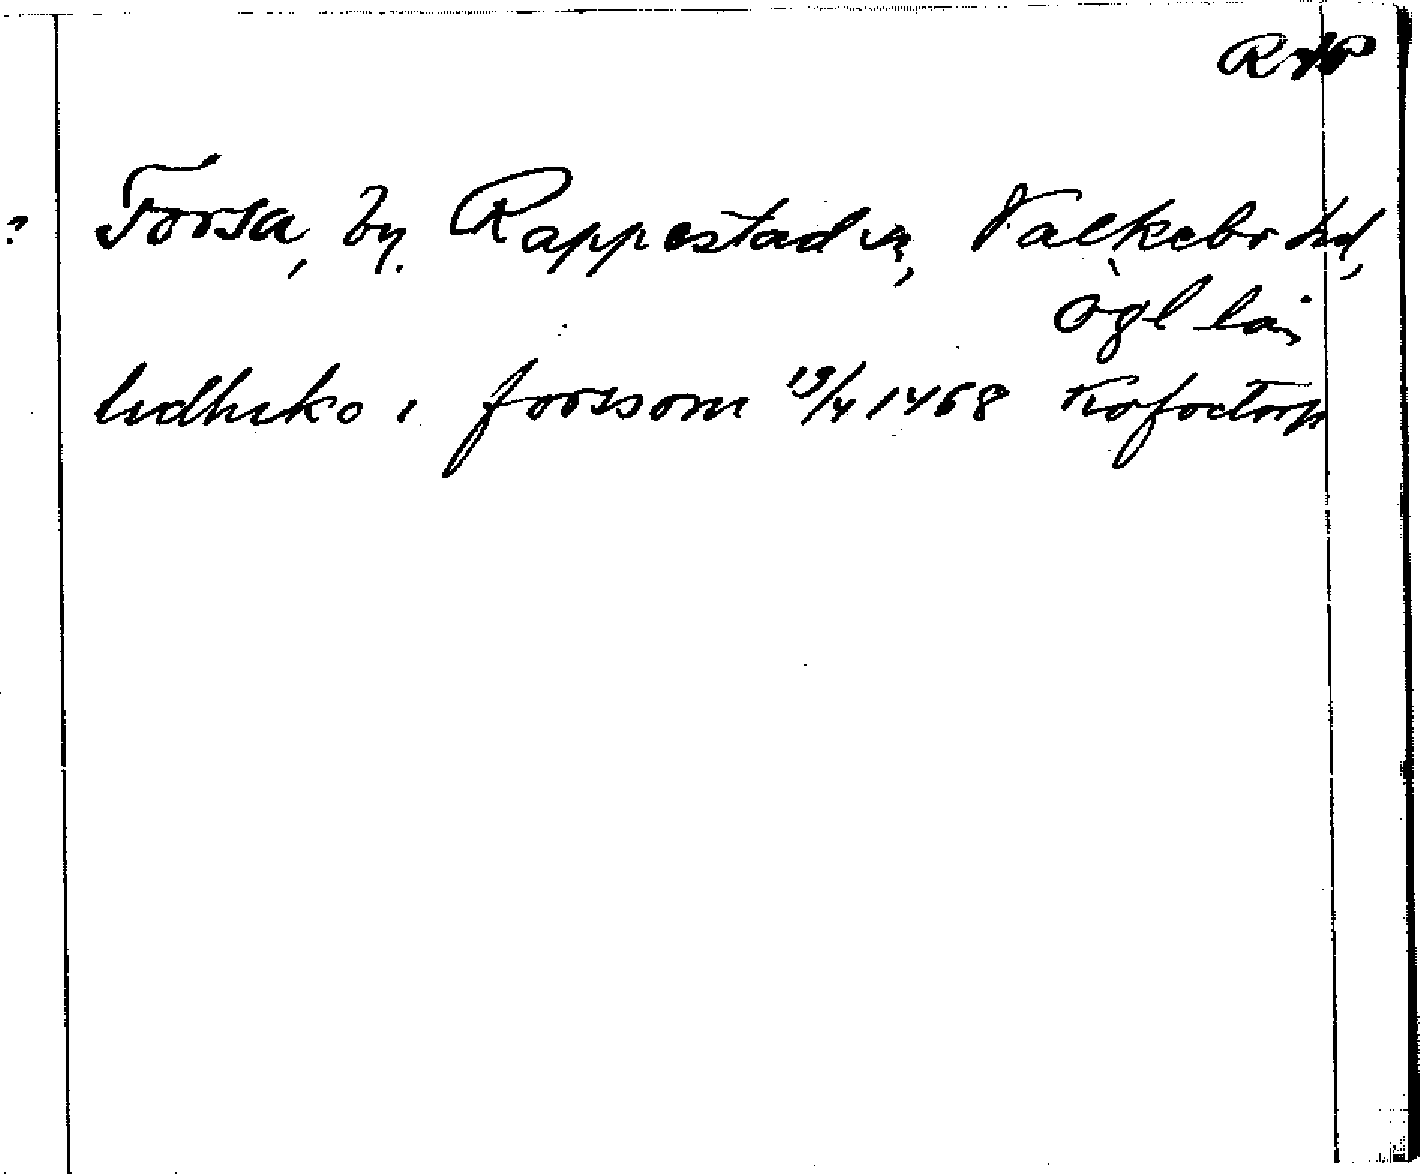 RAP
? Forsa, by. Rappestad sn, Valkebo hd,
Ögl län
ludheko i forssom 19/4 1468 Kofoetorp